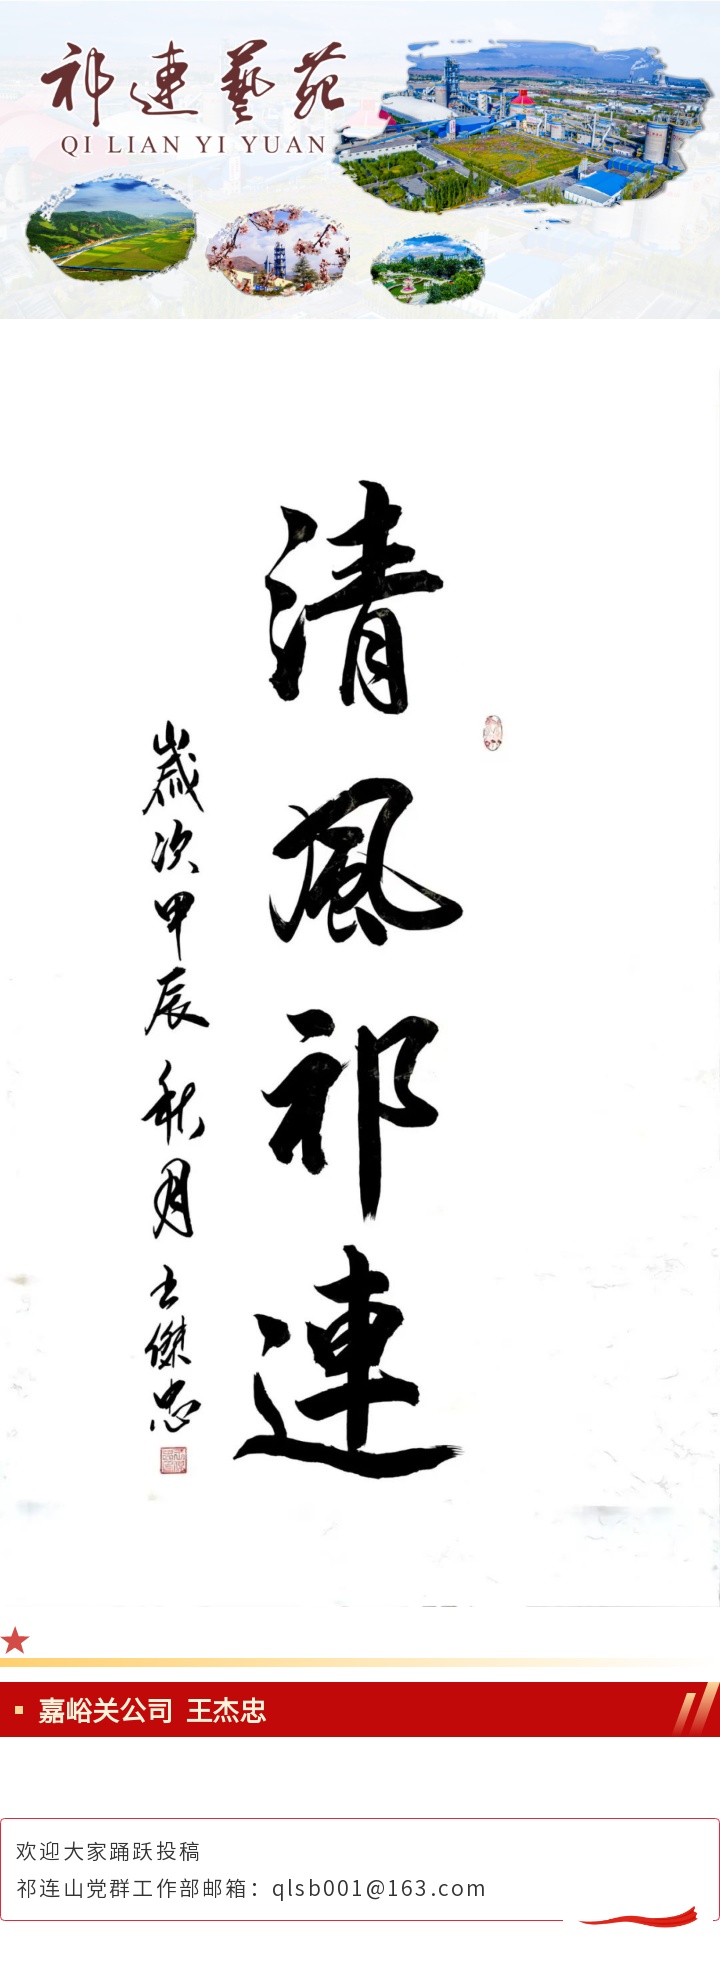 祁連藝苑
QI LIAN YI YUAN
清風祁連
歲次甲辰秋月王傑忠
嘉峪关公司 王杰忠
欢迎大家踊跃投稿
祁连山党群工作部邮箱：qlsb001@163.com